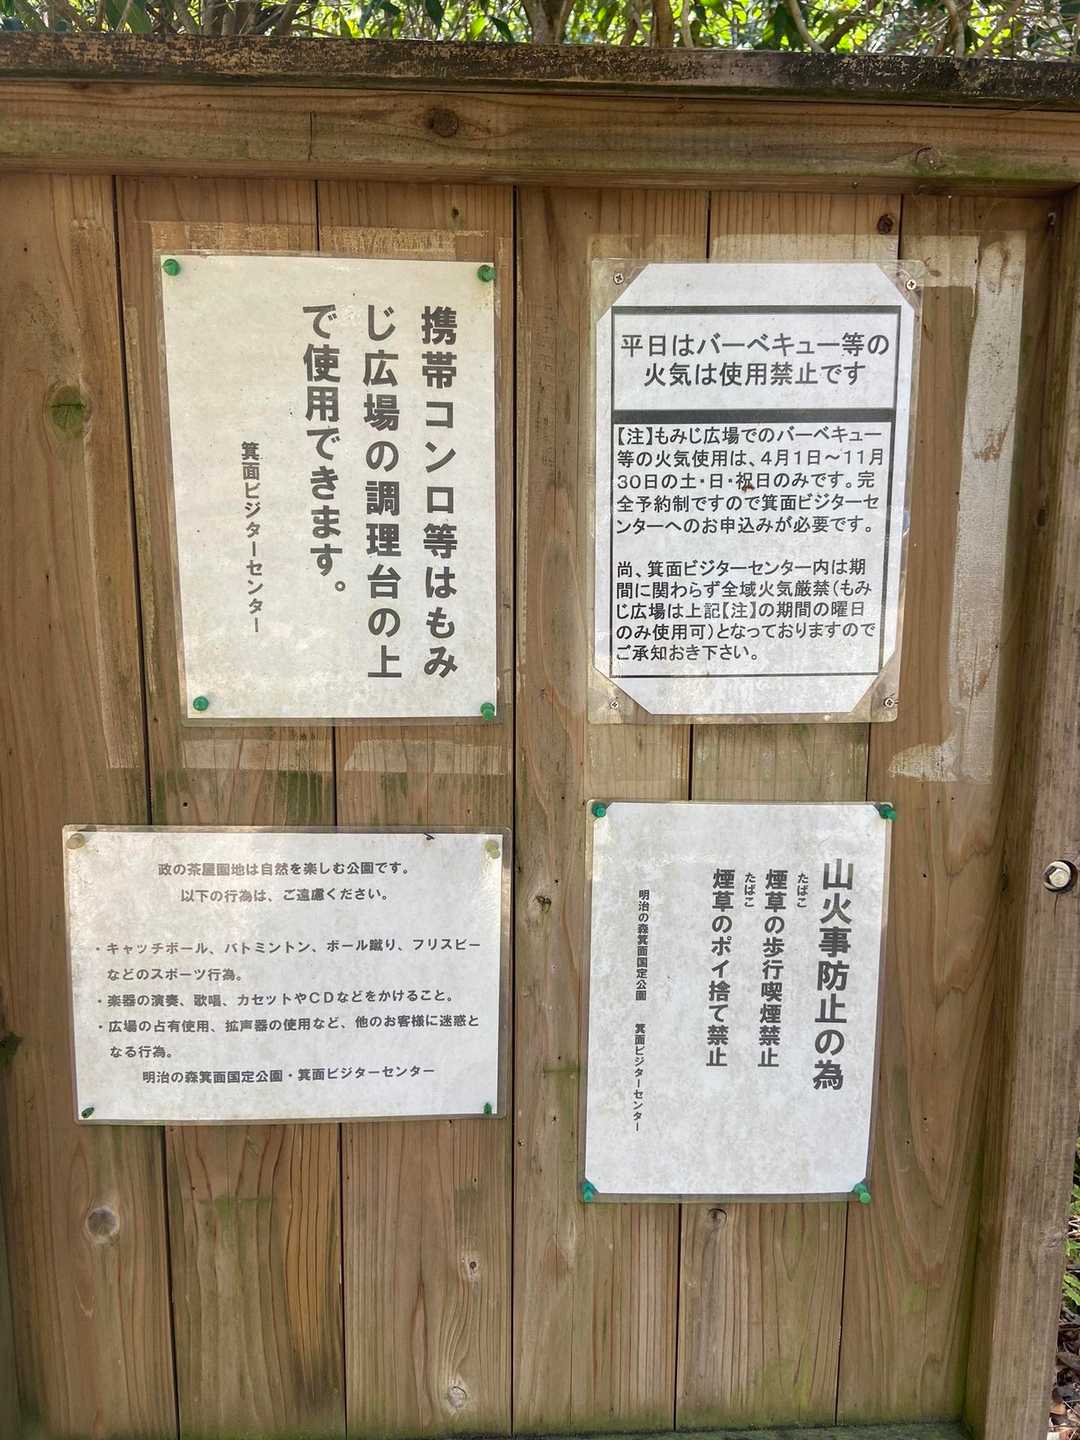 携帯コンロ等はもみ
じ広場の調理台の上
で使用できます。
箕面ビジターセンター
平日はバーベキュー等の
火気は使用禁止です
【注】もみじ広場でのバーベキュー
等の火気使用は、4月1日～11月
30日の土・日・祝日のみです。完
全予約制ですので箕面ビジターセ
ンターへのお申込みが必要です。
尚、箕面ビジターセンター内は期
間に関わらず全域火気厳禁(もみ
じ広場は上記【注】の期間の曜日
のみ使用可)となっておりますので
ご承知おき下さい。
政の茶屋園地は自然を楽しむ公園です。
以下の行為は、ご遠慮ください。
・キャッチボール、バトミントン、ボール蹴り、フリスビー
などのスポーツ行為。
・楽器の演奏、歌唱、カセットやCDなどをかけること。
・広場の占有使用、拡声器の使用など、他のお客様に迷惑と
なる行為。
明治の森箕面国定公園・箕面ビジターセンター
山火事防止の為
たばこ
煙草の歩行喫煙禁止
たばこ
煙草のポイ捨て禁止
明治の森箕面国定公園 箕面ビジターセンター